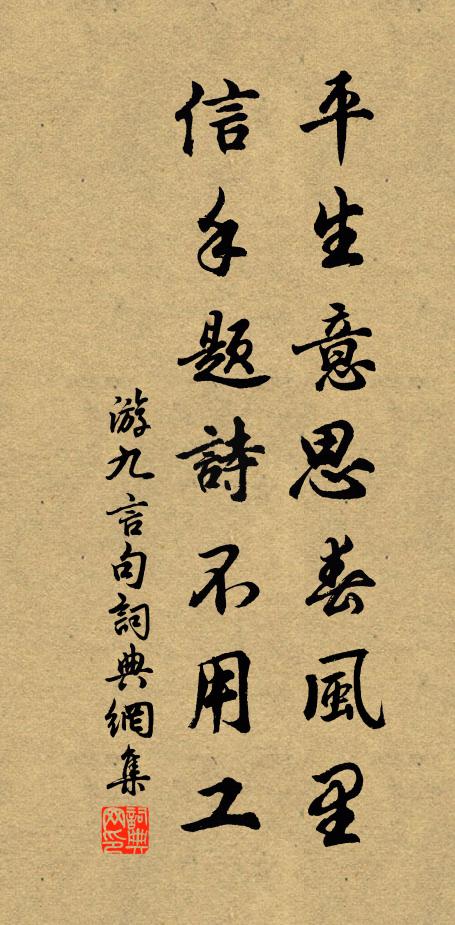 平生意思春風里
信手題詩不用工
游九言句詞典網集
詞典網印